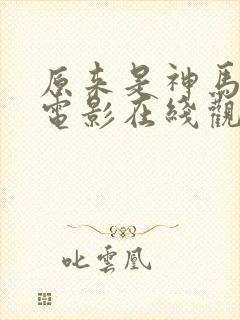 原来是神馬
電影在綫觀
叱雲凰